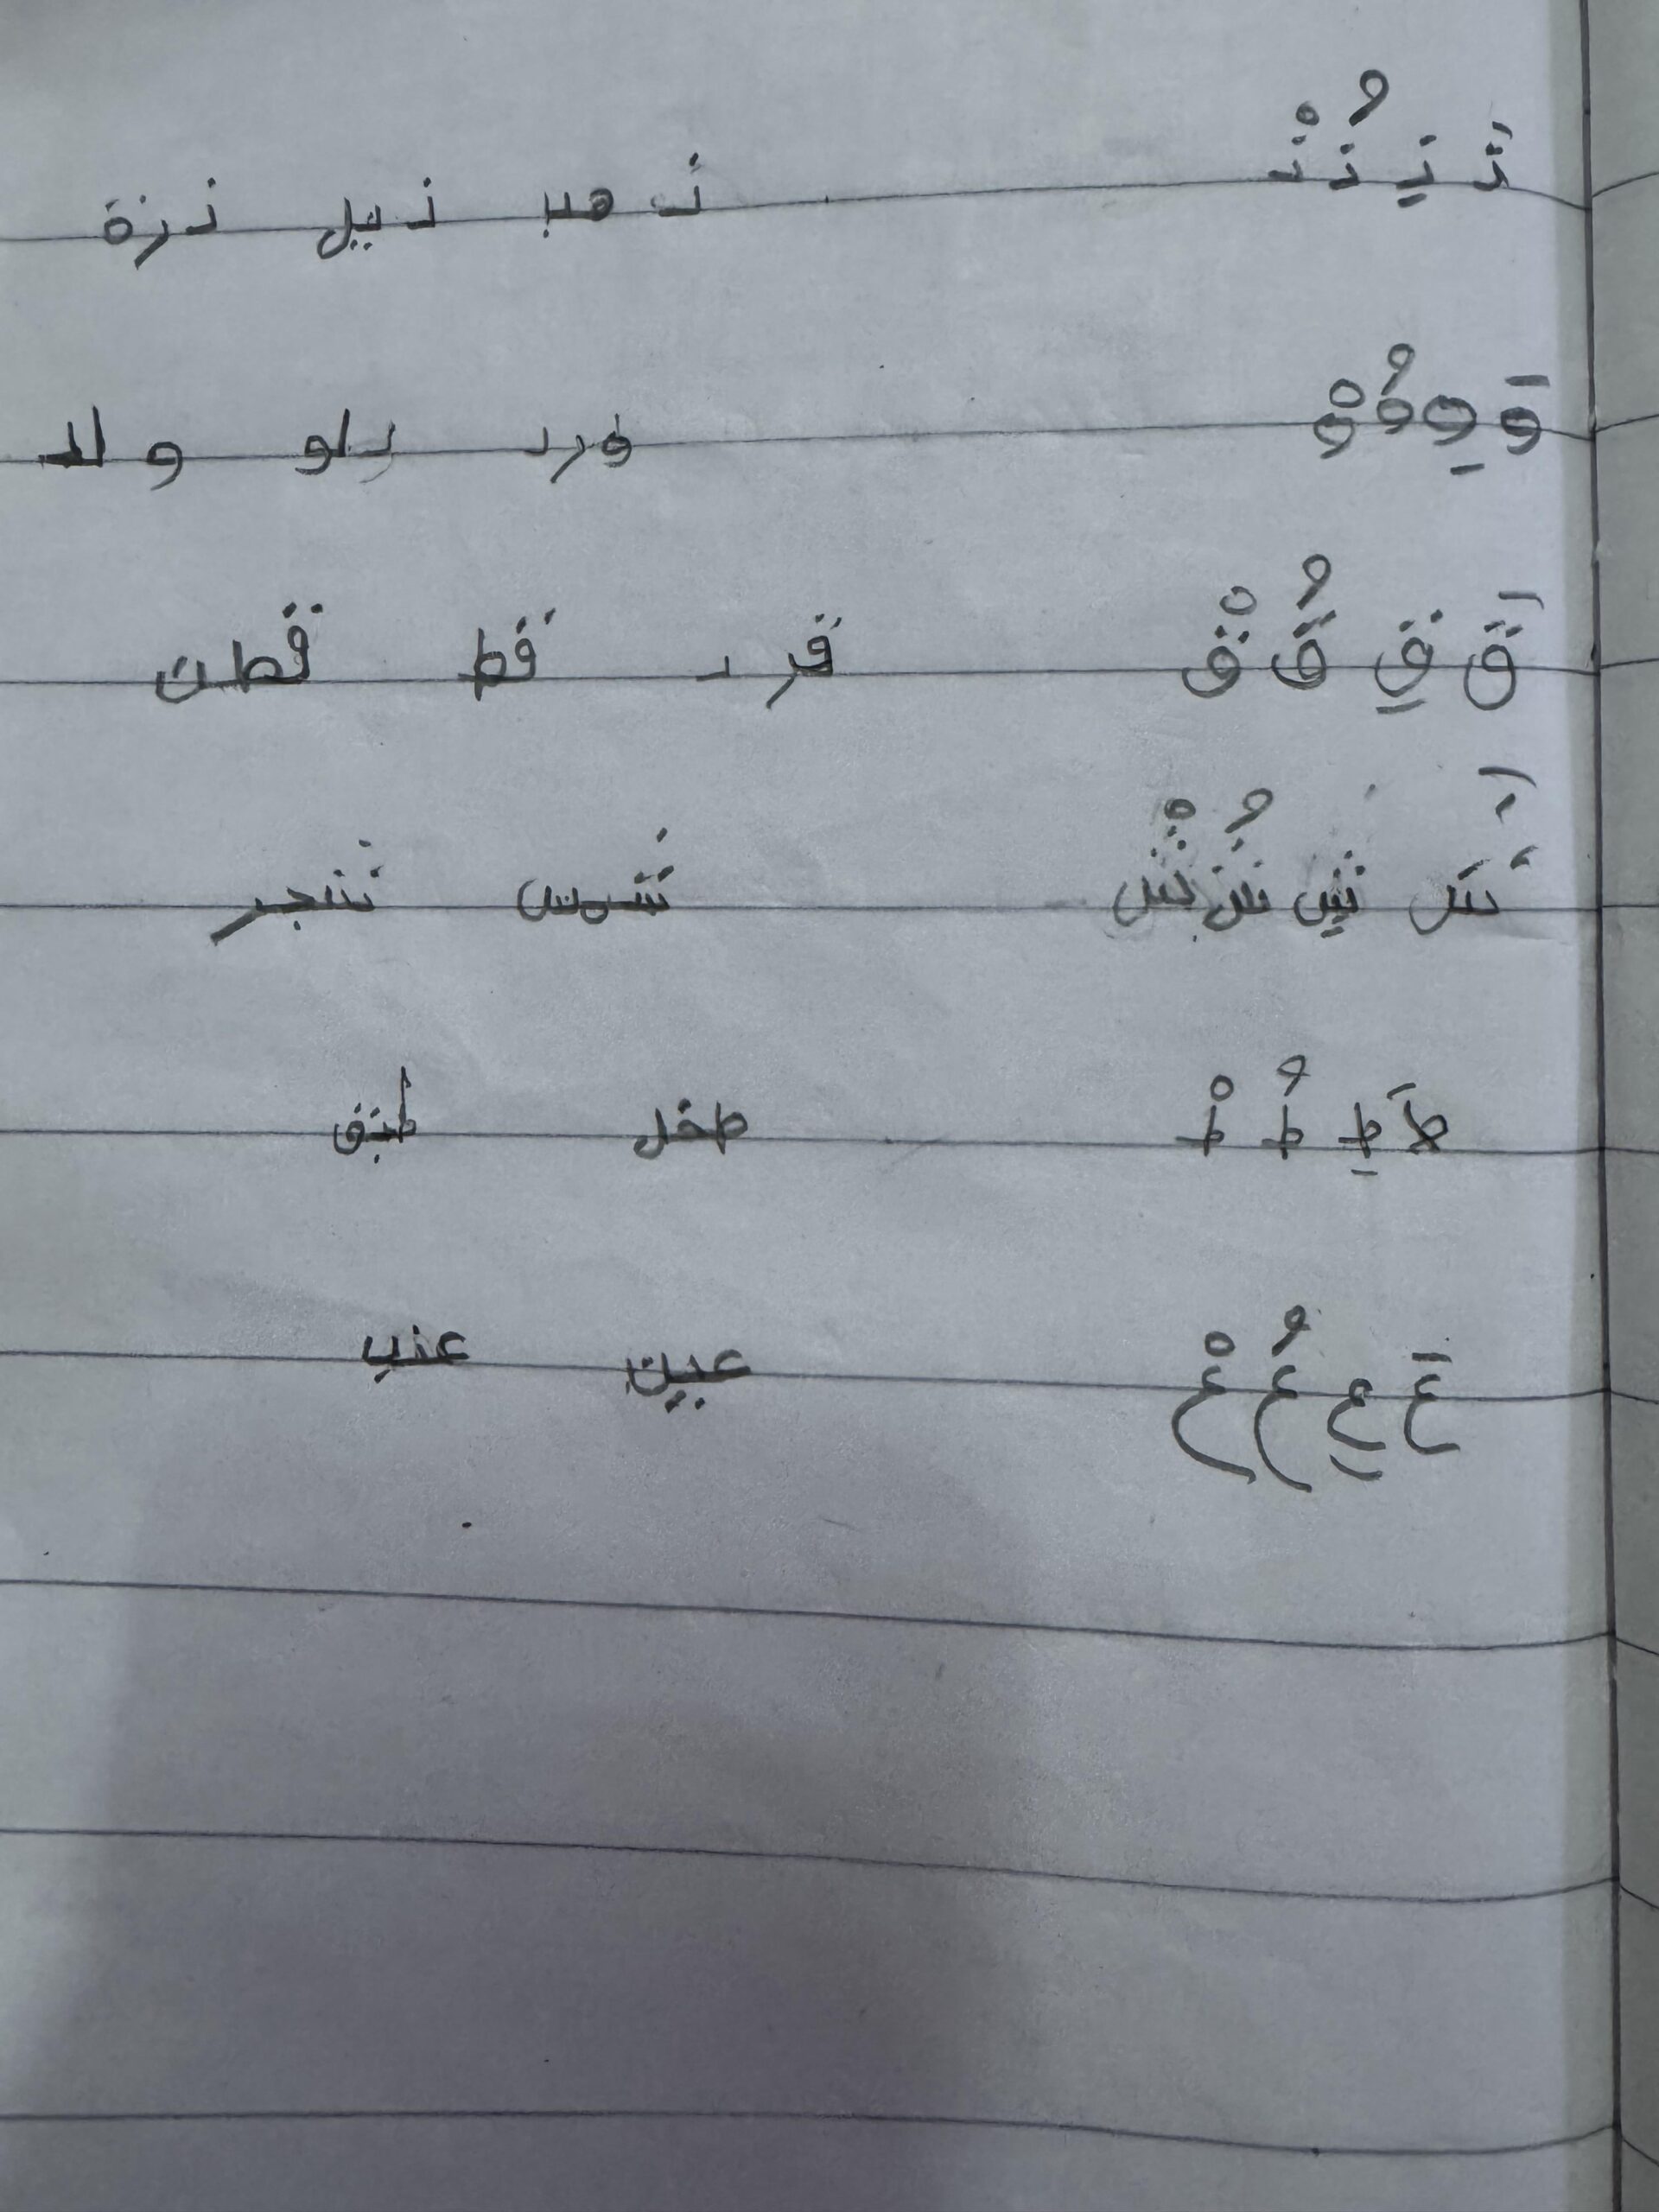 ذَ ذِ ذُ ذْ ذهب ذيل ذرة
وَ وِ وُ وْ ورد دلو ولد
قَ قِ قُ قْ قرد قط قطن
شَ شِ شُ شْ شمس شجر
طَ طِ طُ طْ طفل طبق
عَ عِ عُ عْ عين عنب